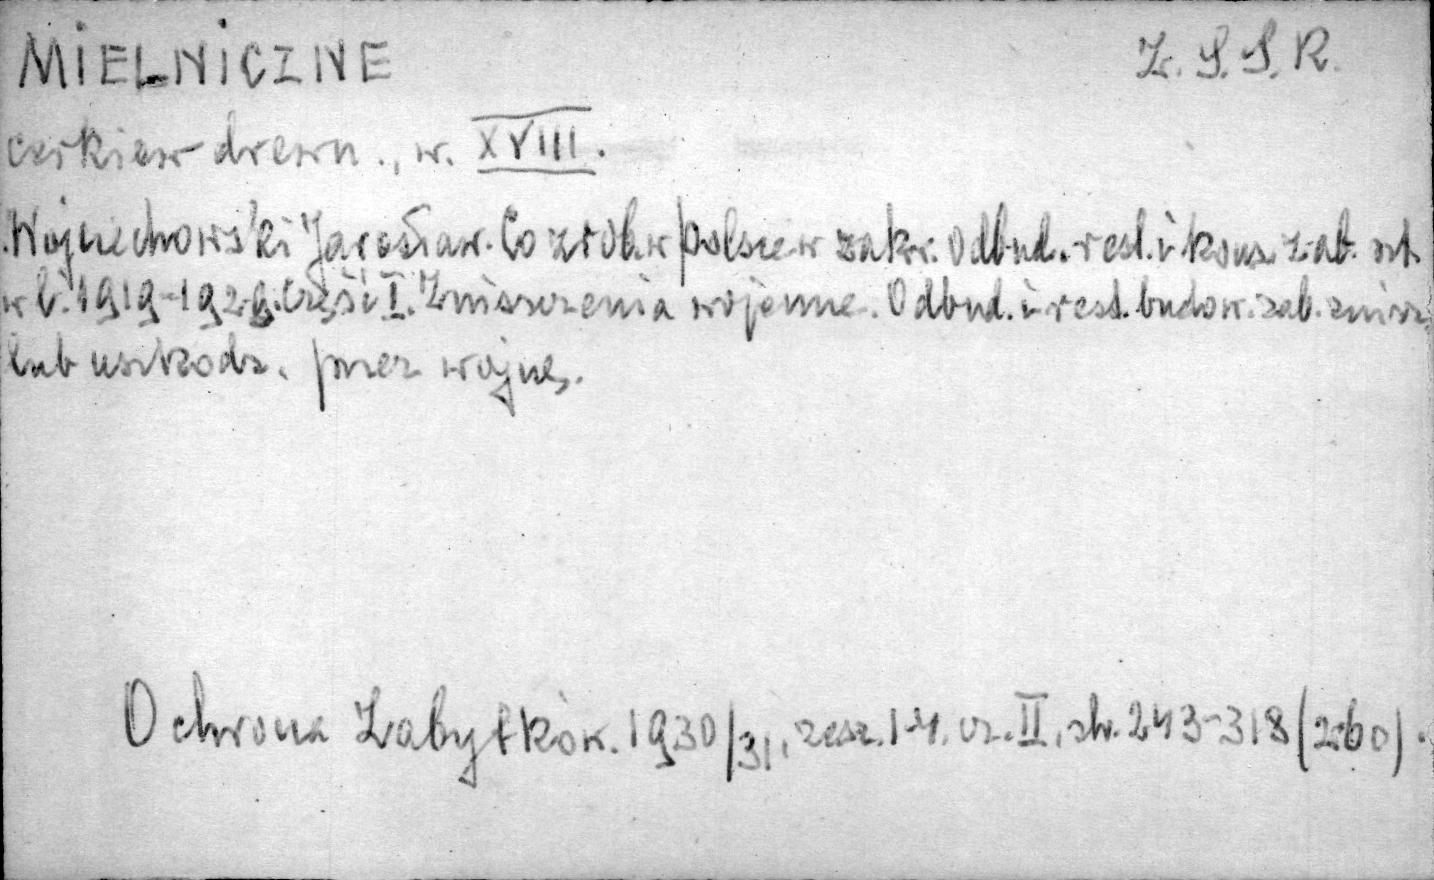 MIELNICZNE Z. S. S. R.
cerkiew drewn., w. XVIII.
Wojciechowski Jarosław. Co zrob. w Polsce w zakr. Odbud. rest. i kons. zab. szt.
w l. 1919-1929. Część I. Zniszczenia wojenne. Odbud. i rest. budow. zab. zniszcz.
lub uszkodz. przez wojnę.
Ochrona Zabytków. 1930/31, zesz. 1-4. cz. II, str. 243-318 (260).